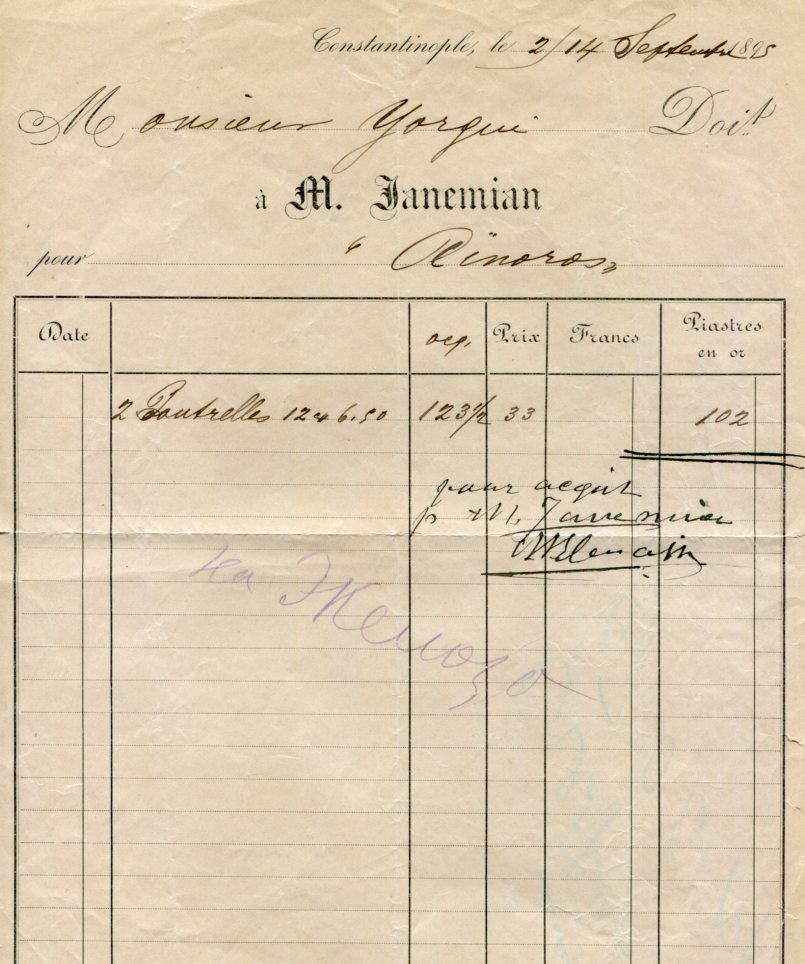 Constantinople, le 2/14 Septembre 1895
Monsieur Yorgui Doit
à M. Janemian
pour
Date ocq. Prix Francs Piastres en or
2 Poutrelles 12 6.50 123 1/2 33 102
pour acquit
p M. Janemian